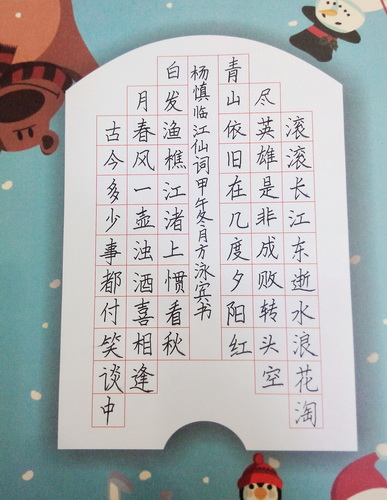 滚滚长江东逝水浪花淘
尽英雄是非成败转头空
青山依旧在几度夕阳红
杨慎临江仙词甲午冬月方泳宾书
白发渔樵江渚上惯看秋
月春风一壶浊酒喜相逢
古今多少事都付笑谈中